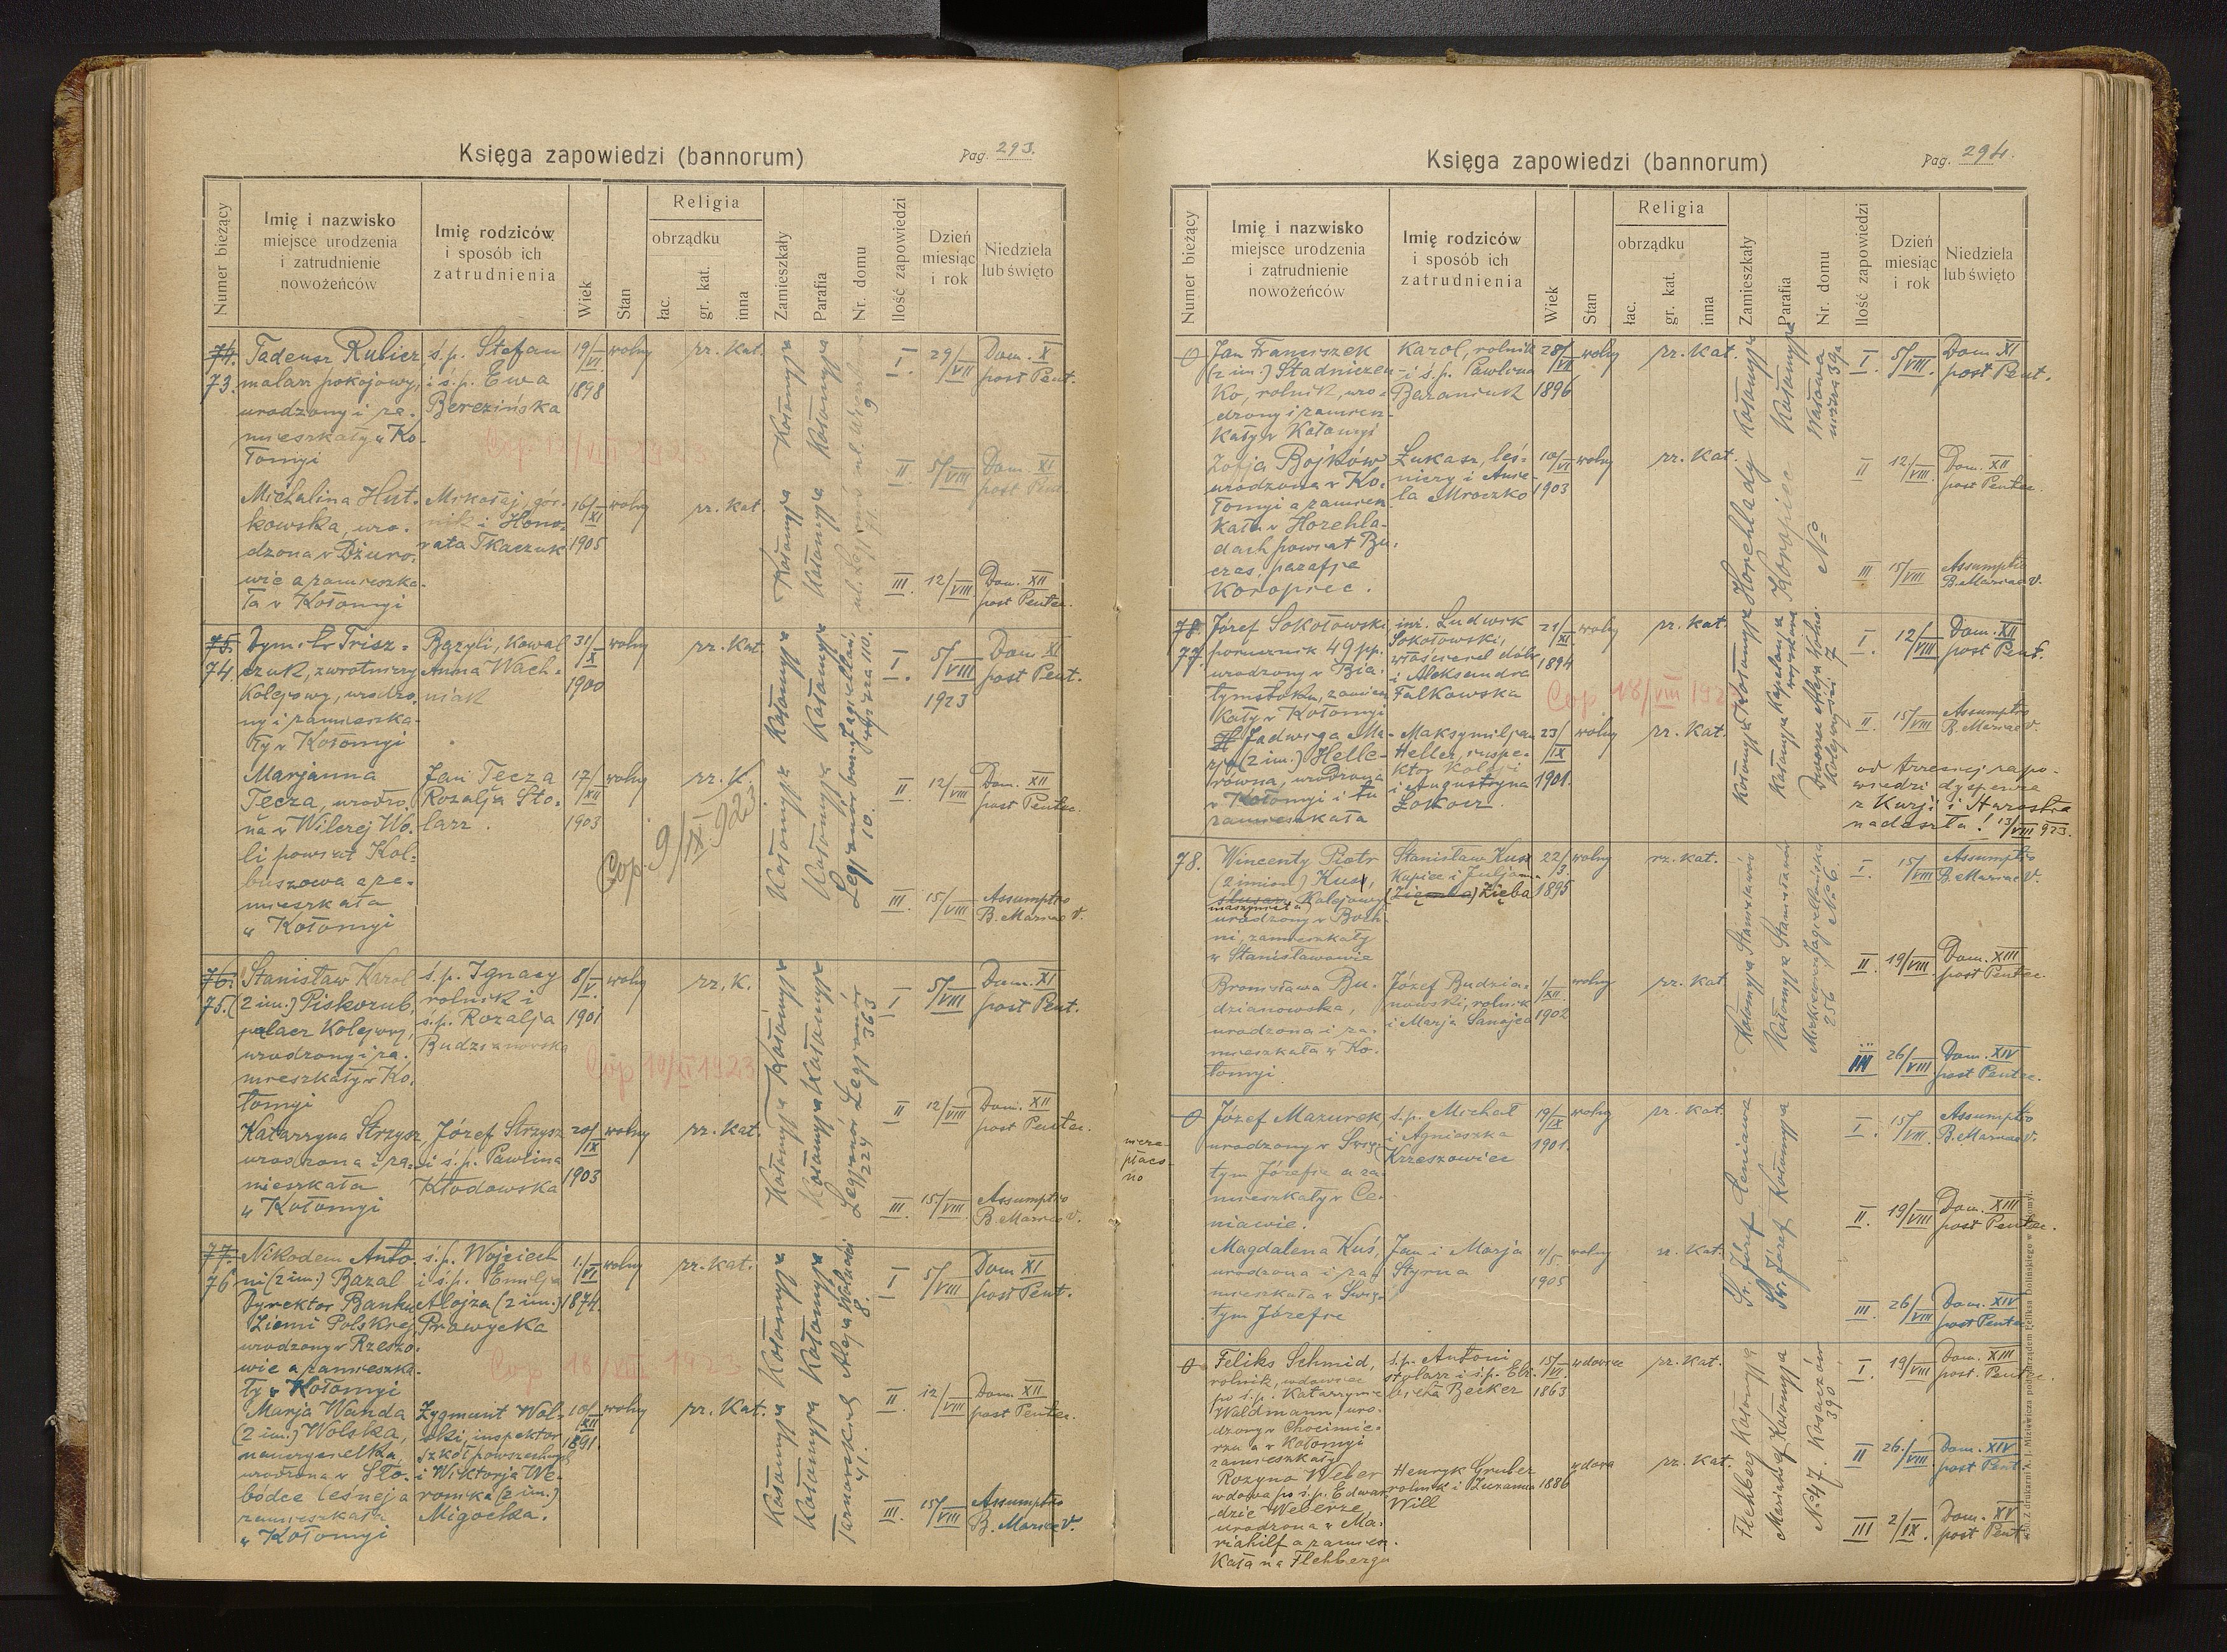 Księga zapowiedzi (bannorum)
Pag. 293.
Numer bieżący
Imię i nazwisko
miejsce urodzenia
i zatrudnienie
nowożeńców
Imię rodziców
i sposób ich
zatrudnienia
Wiek
Stan
Religia
obrządku
łac.
gr. kat.
inna
Zamieszkały
Parafia
Nr. domu
Ilość zapowiedzi
Dzień
miesiąc
i rok
Niedziela
lub święto
74.
73.
Tadeusz Rubier
malarz pokojowy,
urodzony i za-
mieszkały w Ko-
łomyi
ś.p. Stefan
i ś.p. Ewa
Berezińska
19/VI
1898
wolny
rz. kat.
Kołomyja
Kołomyja
I.
29/VII
Dom. X
post Pent.
II
5/VIII
Dom. XI
post Pent
Michalina Hut-
kowska, uro-
dzona w Dżuro-
wie a zamieszka-
ła w Kołomyi
Mikołaj, gór-
nik i Hono-
rata Tkaczuk
16/XI
1905
wolny
rz. kat
Kołomyja
Kołomyja
III.
12/VIII
Dom. XII
post Pentec.
75.
74.
Trisz-
czuk, zwrotniczy
kolejowy, urodzo-
ny i zamieszka-
ły w Kołomyi
Bazyli, kowal
Anna Wach-
niak
31/X
1900
wolny
rz. kat.
Kołomyja
Kołomyja
I.
5/VIII
1923
Dom XI
post Pent.
Marjanna
Tęcza, urodzo-
na w Wilczej Wo-
li powiat Kol-
buszowa a za-
mieszkała
w Kołomyi
Jan Tęcza
Rozalja Sto-
larz.
17/XII
1903
wolny
rz. k.
Cop. 9/IX. 923
Kołomyja
Kołomyja
Legjonów
10.
II
12/VIII
Dom. XII
post Pentec.
III.
15/VIII
Assumptio
B. Mariae V.
76.
75.
Stanisław Karol
(2 im.) Piskozub,
palacz kolejowy,
urodzony i za-
mieszkały w Ko-
łomyi
ś.p. Ignacy
rolnik i
ś.p. Rozalja
Budzianowska
8/V.
1901
wolny
rz. k.
Cop 10/XI 1923
Kołomyja
Kołomyja
Legjonów
363
I
5/VIII
Dom. XI
post Pent.
Katarzyna Strzysz,
urodzona i za-
mieszkała
w Kołomyi
Józef Strzysz
i ś.p. Pawlina
Kłodowska
20/IX
1903
wolny
rz. kat.
Kołomyja
Kołomyja
Legjonów
224
II
12/VIII
Dom. XII
post Pentec.
III.
15/VIII.
Assumptio
B. Mariae V.
77.
76
Nikodem Anto-
ni (2 im.) Bazal
Dyrektor Banku
Ziemi Polskiej,
urodzony w Rzeszo-
wie a zamieszka-
ły w Kołomyi
ś.p. Wojciech
i ś.p. Emilja
Alojza (2 im.)
Prawycka
1./VI
1874.
wolny
rz. kat.
Cop 18/VIII
Kołomyja
Kołomyja
8.
I
5/VIII
Dom XI
post Pent.
Marja Wanda
(2 im.) Wolska,
nauczycielka,
urodzona w Sło-
bódce leśnej a
zamieszkała
w Kołomyi
Zygmunt Wol-
ski, inspektor
szkół powszechnych
i Wiktorja We-
ronika (2 im.)
Migocka.
10/XII
1891.
wolny
rz. kat.
Kołomyja
Kołomyja
Tarnowskich
41.
II
12/VIII
Dom. XII
post Pentec.
III.
15/VIII
Assumptio
B. Mariae V.
Księga zapowiedzi (bannorum)
Pag. 294.
Numer bieżący
Imię i nazwisko
miejsce urodzenia
i zatrudnienie
nowożeńców
Imię rodziców
i sposób ich
zatrudnienia
Wiek
Stan
Religia
obrządku
łac.
gr. kat.
inna
Zamieszkały
Parafia
Nr. domu
Ilość zapowiedzi
Dzień
miesiąc
i rok
Niedziela
lub święto
0
Jan Franciszek
(2 im.) Stadniczen-
ko, rolnik, uro-
dzony i zamiesz-
kały w Kołomyi
Karol, rolnik
i ś.p. Pawlina
Baraniuk
28/VII
1896
wolny
rz. kat.
Kołomyja
Kołomyja
39a
I.
5/VIII.
Dom XI
post Pent.
Zofja Bojków
urodzona w Ko-
łomyi a zamiesz-
kała w Horehla-
dach powiat Bu-
czacz, parafja
Koropiec.
Łukasz, leś-
niczy i Anie-
la Mroczko
10/VI
1903
wolny
rz. kat.
Horehlady
Koropiec
No
II
12/VIII.
Dom. XII
post Pentec.
III
15/VIII
Assumptio
B. Mariae V.
78.
77.
Józef Sokołowski
porucznik 49 pp.
urodzony w Bia-
łymstoku, zamiesz-
kały w Kołomyi
inż. Ludwik
Sokołowski,
właściciel dóbr
i Aleksandra
Falkowska
21/XI
1894
wolny
rz. kat.
Cop 18/VIII 192
Kołomyja
Kołomyja
I.
12/VIII
Dom. XII
post Pent.
Jadwiga Ma-
rja (2 im.) Helle-
równa, urodzona
w Kołomyi i tu
zamieszkała
Maksymiljan
Heller, inspe-
ktor kolei
i Augustyna
Łokocz.
23/IX
1901.
wolny
rz. kat.
Kołomyja
Kołomyja
7
II
15/VIII
Assumptio
B. Mariae V.
od trzeciej zapo-
wiedzi dyspenza
z Kurji i Starostwa
nadeszła! 13/VIII 923.
78.
Wincenty Piotr
(2 imion) Kusz,
ślusarz kolejowy
maszynista
urodzony w Boch-
ni, zamieszkały
w Stanisławowie
Stanisław Kusz
kupiec i Juljanna
Zięba
22/3.
1895
wolny
rz. kat.
Stanisławów
Stanisławów
No 6.
I
15/VIII
Assumptio
B. Mariae V.
Bronisława Bu-
dzianowska,
urodzona i za-
mieszkała w Ko-
łomyi
Józef Budzia-
nowski, rolnik
i Marja Sanojca
1/XII.
1902
wolny
rz. kat.
Kołomyja
Kołomyja
256
II.
19/VIII.
Dom. XIII
post Pentec.
III
26/VIII
Dom. XIV
post Pentec.
nieza-
płaco-
no
0
Józef Mazurek,
urodzony w Świę-
tym Józefie a za-
mieszkały w Ce-
niawie.
ś.p. Michał
i Agnieszka
Krzeszowiec
19/IX
1901.
wolny
rz. kat.
Ceniawa
Kołomyja
I.
15/VIII.
Assumptio
B. Mariae V.
Magdalena Kuś,
urodzona i za-
mieszkała w Świę-
tym Józefie
Jan i Marja
Styrna
11/5.
1905
wolny
rz. kat.
Św. Józef
Św. Józef
II.
19/VIII
Dom. XIII
post Pentec.
III.
26/VIII
Dom. XIV
post Pentec
0
Feliks Schmid,
rolnik, wdowiec
po ś.p. Katarzynie
Waldmann, uro-
dzony w Chocimie-
rzu a w Kołomyi
zamieszkały
ś.p. Antoni
stolarz i ś.p. Elż-
bieta Becker
15/VI.
1863
wdowiec
rz. kat.
Kołomyja
Kołomyja
Kosaczów
390
I.
19/VIII
Dom. XIII
post. Pentec.
Rozyna Weber
wdowa po ś.p. Edwar-
dzie Weberze,
urodzona w Ma-
riahilf a zamiesz-
kała na Flehbergu
Henryk Gruber
rolnik i Zuzanna
Will
1886
wdowa
rz. kat.
Flehberg
Mariahilf
No 47.
II
26./VIII.
Dom. XIV
post Pent.
III
2/IX.
Dom. XV
post Pent.